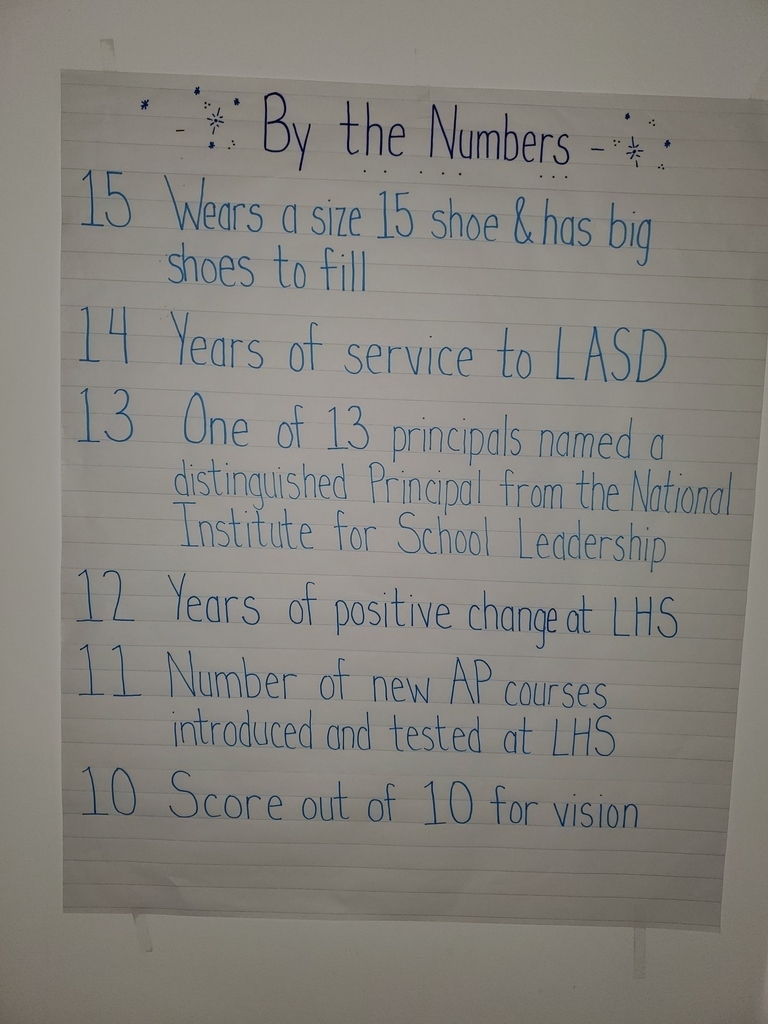 By the Numbers
15 Wears a size 15 shoe & has big
shoes to fill
14 Years of service to LASD
13 One of 13 principals named a
distinguished Principal from the National
Institute for School Leadership
12 Years of positive change at LHS
11 Number of new AP courses
introduced and tested at LHS
10 Score out of 10 for vision